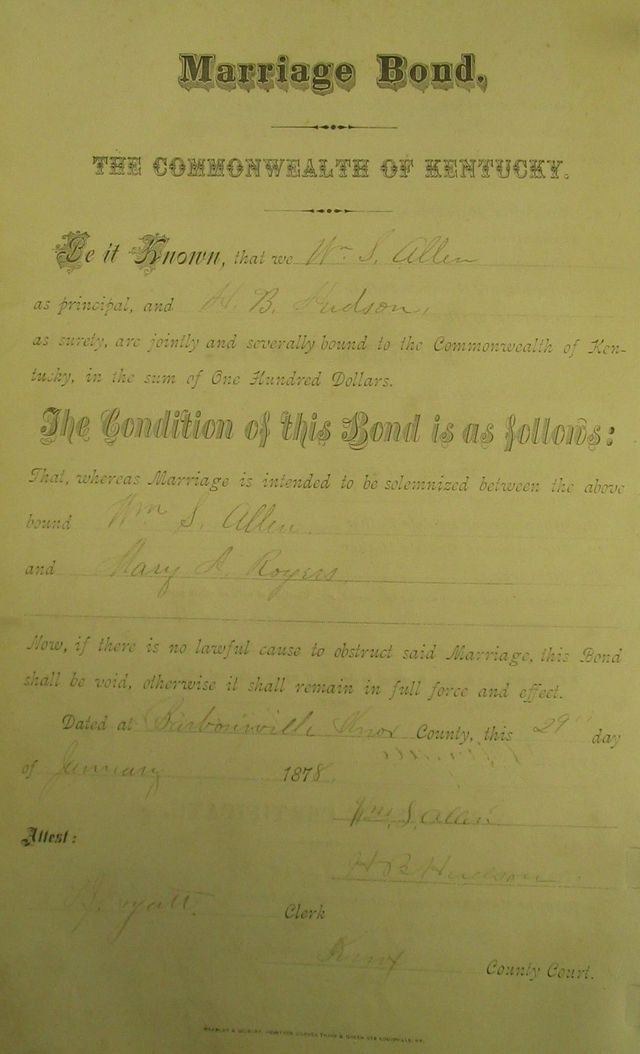 Marriage Bond,
THE COMMONWEALTH OF KENTUCKY.
Be it Known, that we Wm S. Allen
as principal, and H. B. Hudson,
as surety, are jointly and severally bound to the Commonwealth of Ken-
tucky, in the sum of One Hundred Dollars.
The Condition of this Bond is as follows:
That, whereas Marriage is intended to be solemnized between the above
bound Wm S. Allen.
and Mary A. Rogers.
Now, if there is no lawful cause to obstruct said Marriage, this Bond
shall be void, otherwise it shall remain in full force and effect.
Dated at Barbourville Knox County, this 29" day
of January 1878.
Wm. S. Allen
Attest:
H B Hudson
Clerk
Knox County Court.